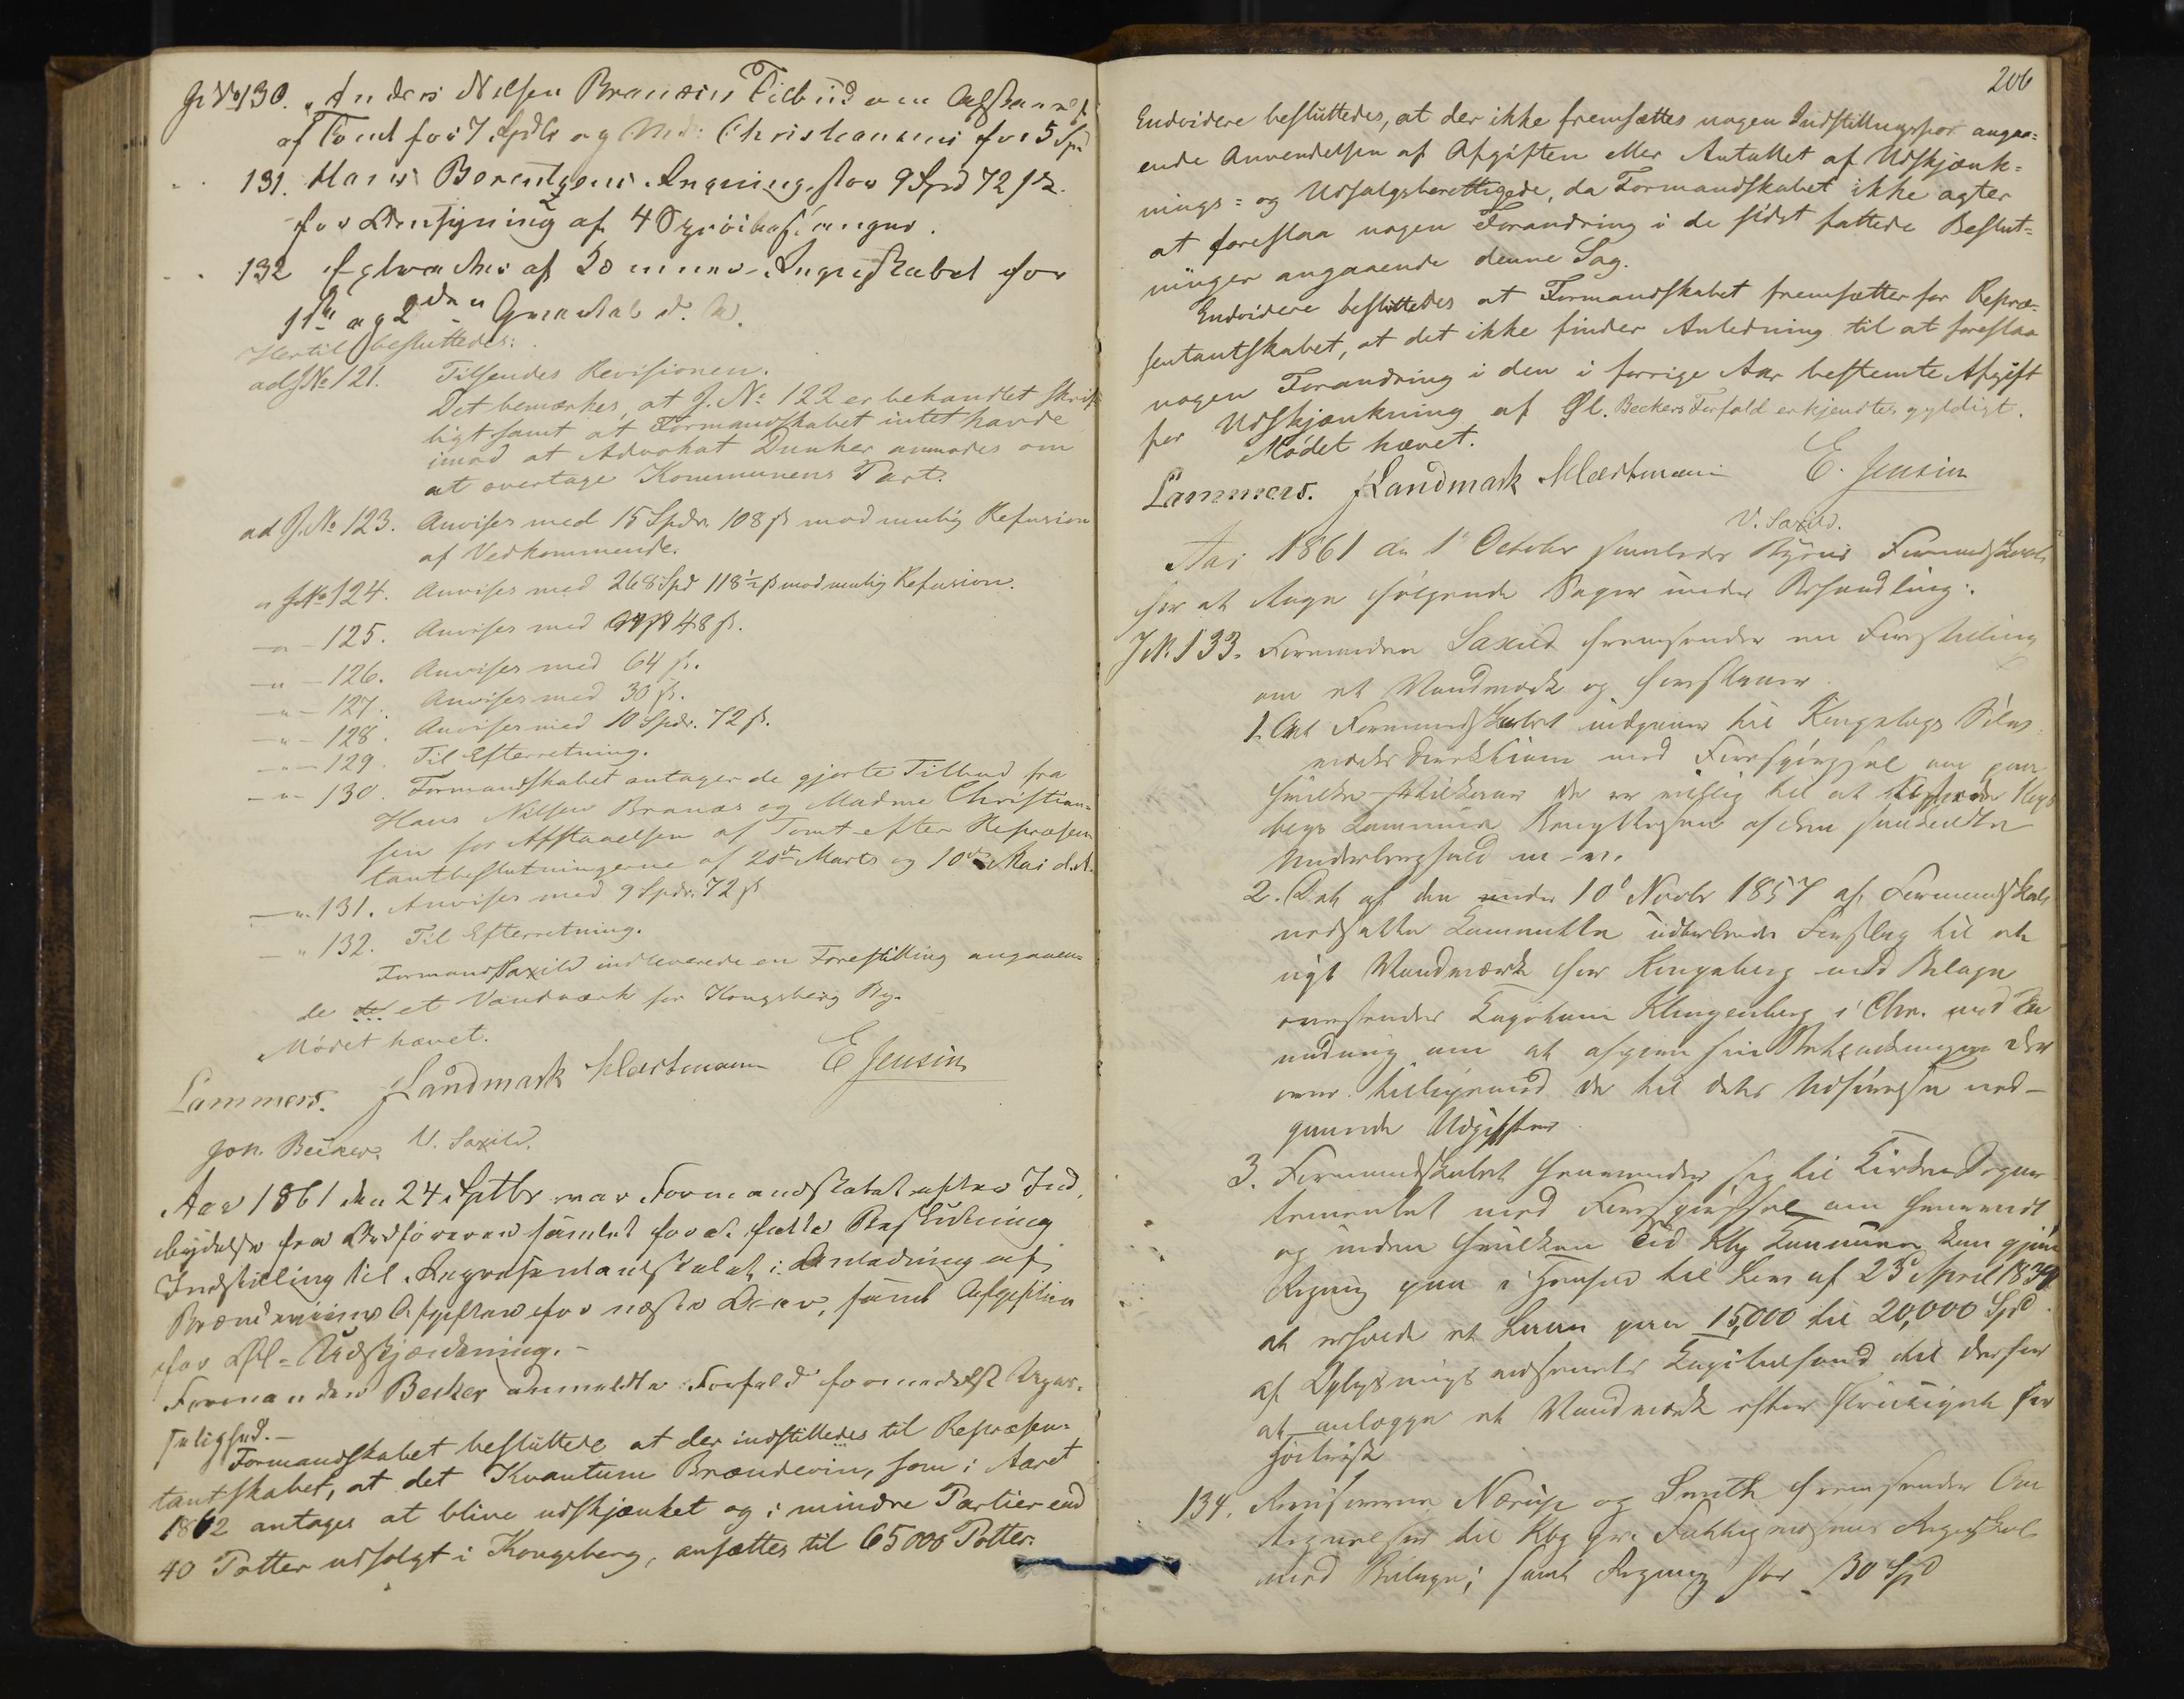 J. No 130. Anders Nilsen Branæs Tilbud om Afstaaelse
af Tomt for 7 Spdlr og Md: Christiansens for 5 Spd
131. Hans Berentzens Regning stor 9 Spd 72 ß.
for Rensning af 4 Sprøite
132 Extracter af Regnskabet for
1ste og 2den Qvartal d. A.
Hertil besluttedes:
ad J. No 121. Tilsendes Revisionen.
Det bemærkes, at J. No 122 er behandlet skrift
ligt samt at Formandskabet intet havde
imod at Advokat Dunker anmodes om
at overtage Kommunens Part.
ad J. No 123. Anvises med 15 Spdr. 108 ß mod mulig Refusion
af Vedkommende.
" J. No 124. Anvises med 268 Spd 118 1/2 ß mod mulig Refusion.
— " — 125. Anvises med 48 ß.
— " — 126. Anvises med 64 ß.
— " — 127. Anvises med 30 ß.
— " — 128. Anvises med 10 Spdr. 72 ß.
— " — 129. Til Efterretning.
— " — 130. Formandskabet antager de gjorte Tilbud fra
Hans Nilsen Branæs og Madme Christian-
sen for Afstaaelsen af Tomt efter Repræsen
tantbeslutningerne af 20de Marts og 10de Mai d.A.
— " 131. Anvises med 9 Spdr. 72 ß
— " 132. Til Efterretning.
Formand Saxild indleverede en Forestilling angaaen-
de et Vandværk for Kongsberg By.
Mødet hævet.
Lammers. Landmark Mærtmann E Jensen
Joh. Becker. V. Saxild.
Aar 1861 den 24 Septbr var Formandskabet efter Ind
bydelse fra Ordføreren samlet for at fatte Beslutning
Indstilling til Repræsentantskabet i Anledning af
Brændeviins Afgiften for næste Aar, samt Afgiften
for Øl-Udskjænkning. —
Formanden Becker anmeldte Forfald formedelst Upas-
selighed. —
Formandskabet besluttede at der indstilledes til Repræsen-
tantskabet, at det Kvantum Brændeviin, som i Aaret
1862 antages at blive udskjænket og i mindre Partier end
40 Potter udsolgt i Kongsberg, ansættes til 65000 Potter.
206
Endvidere besluttedes, at der ikke fremsættes nogen Indstilling angaa-
ende Anvendelsen af Afgiften eller Antallet af Udskjænk-
nings- og Udsalgsberettigede, da Formandskabet ikke agter
at foreslaa nogen Forandring i de sidst fattede Beslut-
ninger angaaende denne Sag.
Endvidere besluttedes at Formandskabet fremsætter for Repræ-
sentantskabet, at det ikke finder Anledning til at foreslaa
nogen Forandring i den i forrige Aar bestemte Afgift
for Udskjænkning af Øl. Beckers Forfald erkjendtes gyldigt.
Mødet hævet.
Lammers. Landmark Mærtmann E. Jensen
V. Saxild.
Aar 1861 den 1e October samledes Byens Formandskab
for at tage følgende Sager under Behandling:
J. N. 133. Formanden Saxild fremsender en Forestilling
om et Vandværk og foreslaaer
1. At Formandskabet indgaaer til Kongsbergs Sølv
værks Direktion med Forespørgsel om paa
hvilke Vilkaar de er villig til at Kongs
bergs Kommune Benyttelsen af den saakaldte
m. v.
2. At af den under 10de Novbr 1857 af Formandskabet
nedsatte Committe udarbeidede Forslag til et
nyt Vandværk for Kongsberg med Bilage
oversendes Kapitain Klingenberg i Chr. med An
modning om at afgive sin Betænkning der
over tilligemed de til dets Udførelse med-
gaaende Udgifter.
3. Formandskabet henvender sig til Kirkedepar
tementet med Forespørgsel om hvorvidt
og inden hvilken Tid Kbg Kommune kan gjøre
Regning paa i Henhold til Lov af 23 April 1834
at erholde et Laan paa 15,000 til 20,000 Spd
af Oplysningsvæsenets Kapitalfond til derfor
at anlægge et Vandværk efter
134. Revisorerne Nærup og Smith fremsender An
tegnelser til Kbg Fattigvæsens Regnskab
med Bilage; samt Regning for 30 Spd